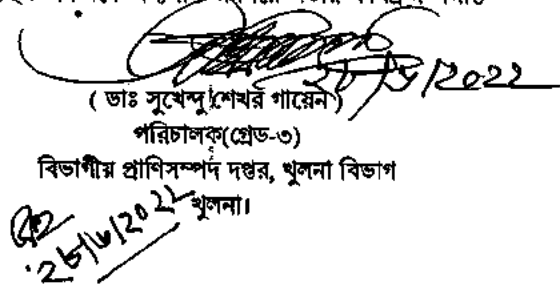 ২৮/৬/২০২২
( ডাঃ সুখেন্দু শেখর গায়েন )
পরিচালক(গ্রেড-৩)
বিভাগীয় প্রাণিসম্পদ দপ্তর, খুলনা বিভাগ
খুলনা।
২৮/৬/২০২২